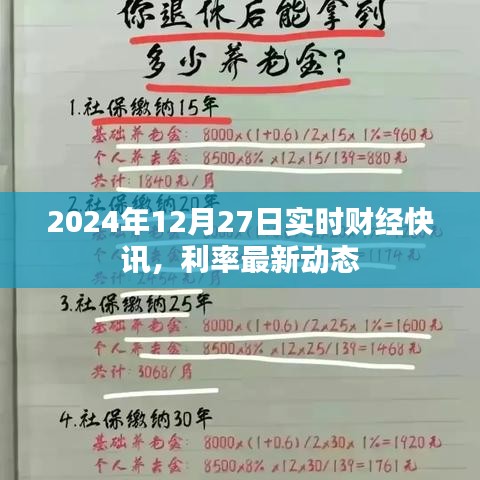 你退休后能拿到
多少养老金?
1.社保缴纳15年
基础养老金: 8000x(1+0.6)/2x15x 1%=960元
个人养老金: 8500x8% x12x15/139=880元
共计: 1840元/月
2024年12月27日实时财经快
讯，利率最新动态
3.社保缴纳25年
基础养老金: 8000x(1+0.6)/2x25x 1%=1600元
个人养老金: 8500x8%x12x25/139=1468元
共计: 3068/月
4.社保缴纳30年
基础养老金: 8000x(1+0.6)/2x30x 1%=1920元
个人养老金: 8500x8%x12x30/139=1761元